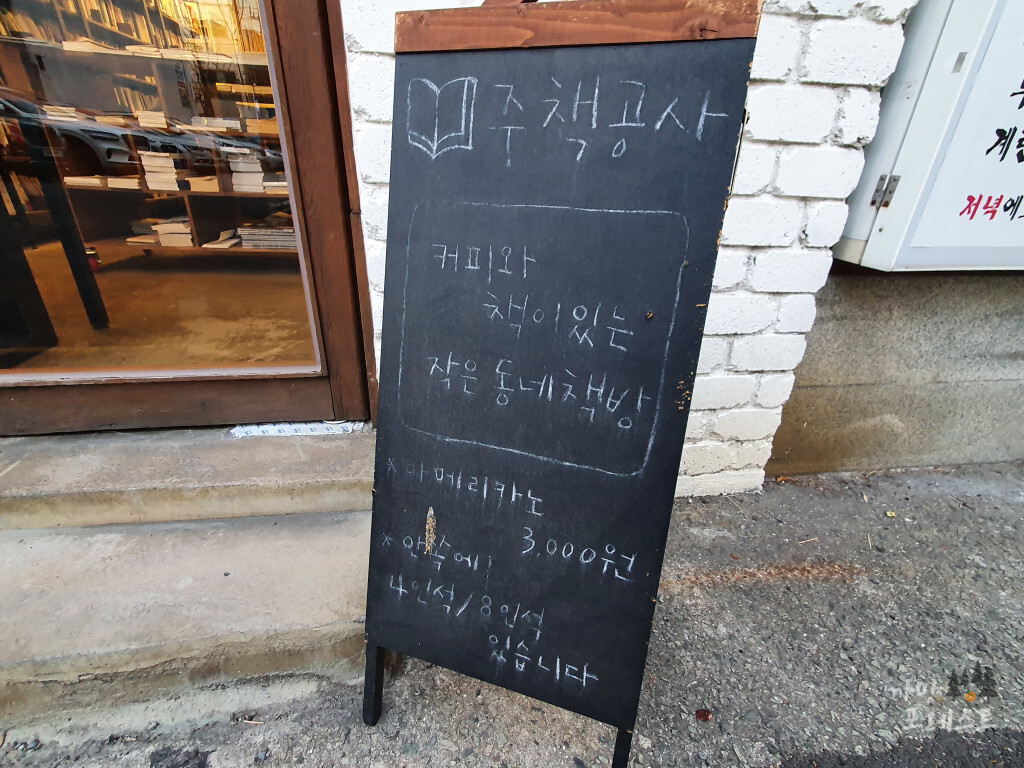 주책공사
커피와
책이 있는
작은 동네책방
* 아메리카노
3,000원
* 안쪽에
4인석/8인석
있습니다
저녁에
포레스트